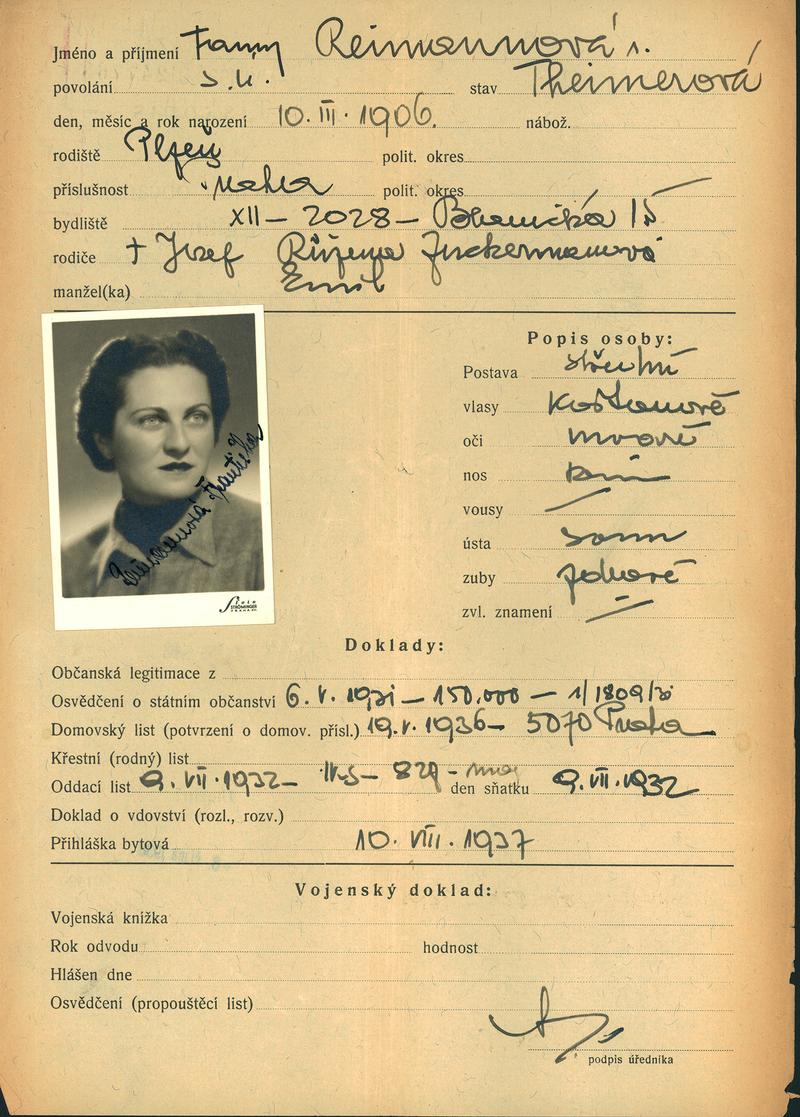 Jméno a příjmení Fanny Reimannová r.
povolání stav Theimerová
den, měsíc a rok narození 10. III. 1906. nábož.
rodiště Plzeň polit. okres
příslušnost Praha polit. okres
bydliště XII – 2028 –
rodiče † Josef Růžena Zuckermannová
manžel(ka) Emil
Popis osoby:
Postava střední
vlasy kaštanové
oči
nos
vousy
ústa
zuby
zvl. znamení
Reimannová Františka
Foto
STRÖMINGER
Doklady:
Občanská legitimace z
Osvědčení o státním občanství 6. V. – 150.000 –
Domovský list (potvrzení o domov. přísl.) 19. V. 1936 – 5070 Praha
Křestní (rodný) list
Oddací list 9. VII. 1932 – – 829 – den sňatku 9. VII. 1932
Doklad o vdovství (rozl., rozv.)
Přihláška bytová 10. VIII. 1937
Vojenský doklad:
Vojenská knížka
Rok odvodu hodnost
Hlášen dne
Osvědčení (propouštěcí list)
podpis úředníka